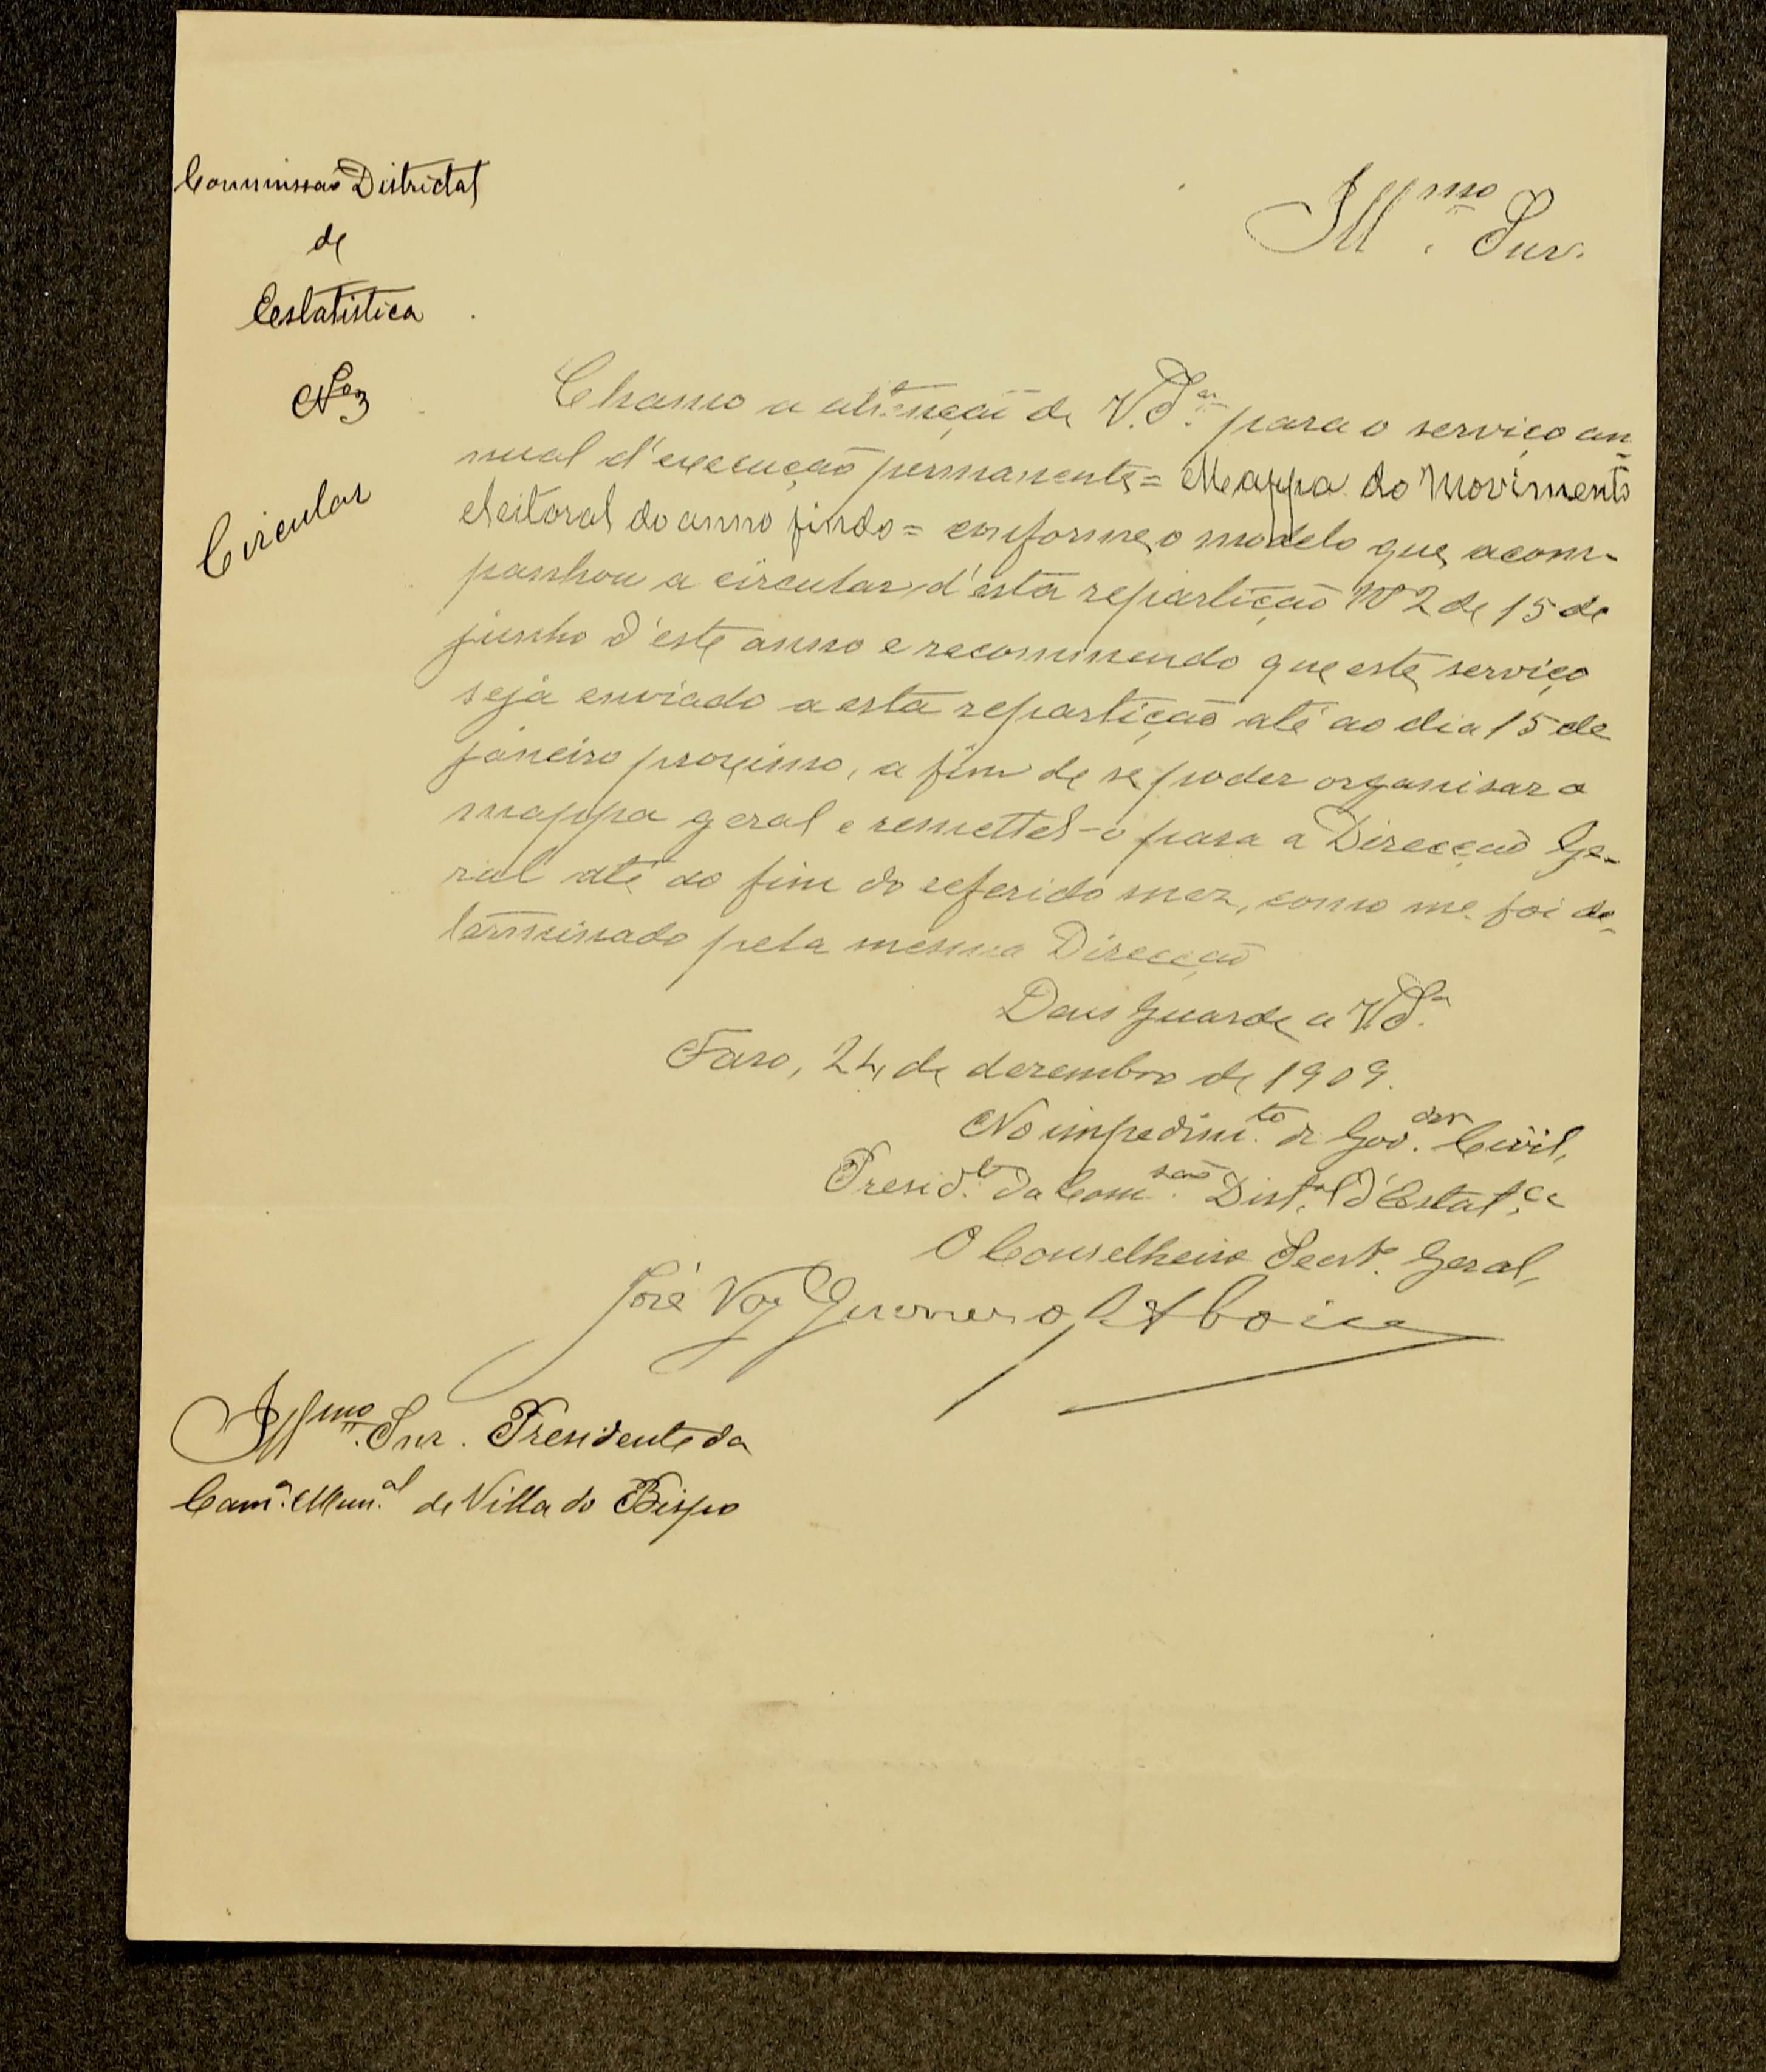 Commissão Districtal
de
Estatistica
Nº 3
Circular
Illmo. Snr.
Chamo a attenção de V. Sª. para o serviço an-
nual d'execução permanente = Mappa do Movimento
eleitoral do anno findo = conforme o modelo que acom-
panhou a circular d'esta repartição Nº 2 de 15 de
junho d'este anno e recommendo que este serviço
seja enviado a esta repartição até ao dia 15 de
janeiro proximo, a fim de se poder organisar o
mappa geral e remettel-o para a Direcção Ge-
ral até ao fim do referido mez, como me foi de-
terminado pela mesma Direcção
Deus Guarde a V. Sª.
Faro, 24 de dezembro de 1909.
No impedimto. do Govdor. Civil,
Presidte. da Comssão. Distal. d'Estatca.
O Conselheiro Secrtº. Geral,
José Vaz Guerreiro d'Aboim
Illmo. Snr. Presidente da
Camª. Munal. de Villa do Bispo